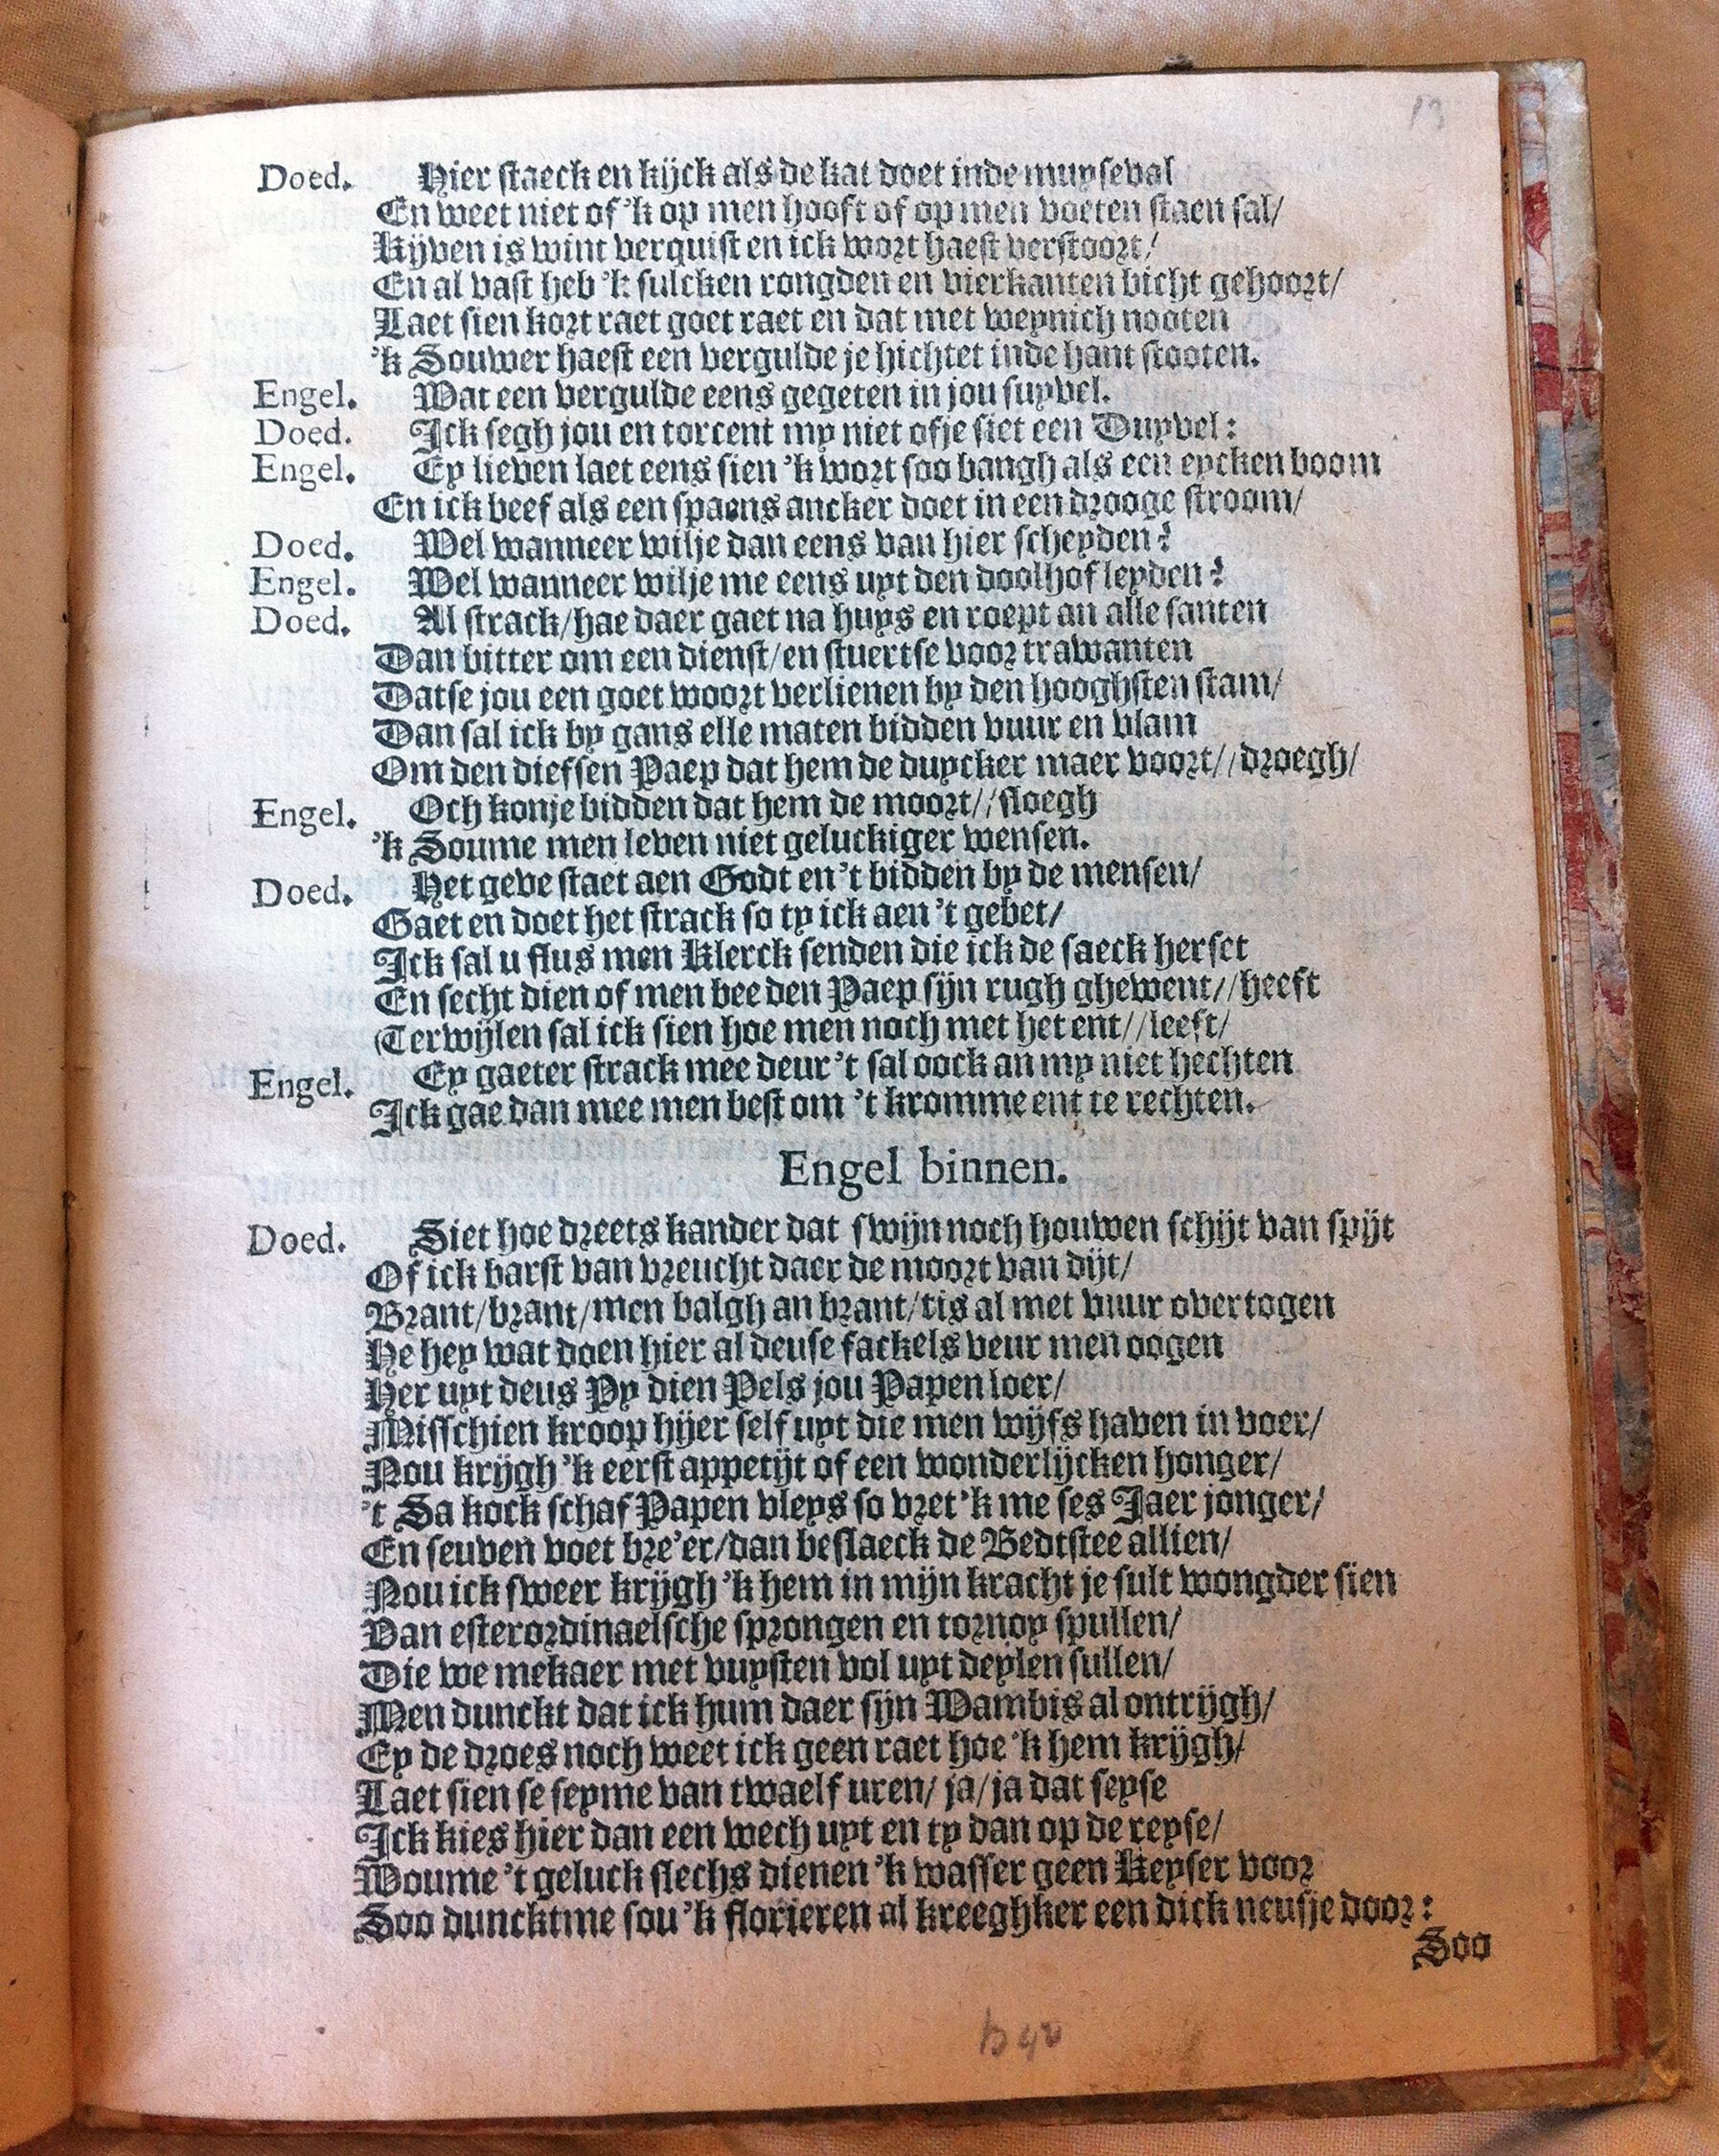 13
Doed. Hier staeck en kijck als de kat doet inde muyseval
En weet niet of 'k op men hooft of op men voeten staen sal/
Kijven is wint verquist en ick wort haest verstoort/
En al vast heb 'k sulcken rongden en vierkanten bicht gehoort/
Laet sien kort raet goet raet en dat met weynich nooten
'k Souwer haest een vergulde je hichtet inde hant stooten.
Engel. Wat een vergulde eens gegeten in jou suyvel.
Doed. Ick segh jou en torcent my niet ofje siet een Duyvel:
Engel. Ey lieven laet eens sien 'k wort soo bangh als een eycken boom
En ick beef als een spaens ancker doet in een drooge stroom/
Doed. Wel wanneer wilje dan eens van hier scheyden?
Engel. Wel wanneer wilje me eens uyt den doolhof leyden?
Doed. Al strack/hae daer gaet na huys en roept an alle santen
Dan bitter om een dienst/en stuertse voor trawanten
Datse jou een goet woort verlienen by den hooghsten stam/
Dan sal ick by gans elle maten bidden vuur en vlam
Om den diefsen Paep dat hem de duycker maer voort//droegh/
Engel. Och konje bidden dat hem de moort//sloegh
'k Soume men leven niet geluckiger wensen.
Doed. Het geve staet aen Godt en 't bidden by de mensen/
Gaet en doet het strack so ty ick aen 't gebet/
Ick sal u flus men Klerck senden die ick de saeck herset
En secht dien of men bee den Paep sijn rugh ghewent//heeft
(Terwijlen sal ick sien hoe men noch met het ent//leeft/
Engel. Ey gaeter strack mee deur 't sal oock an my niet hechten
Ick gae dan mee men best om 't kromme ent te rechten.
Engel binnen.
Doed. Siet hoe dreets kander dat swijn noch houwen schijt van spijt
Of ick barst van vreucht daer de moort van dijt/
Brant/brant/men balgh an brant/tis al met vuur overtogen
He hey wat doen hier al deuse fackels veur men oogen
Her uyt deus Py dien Pels jou Papen loer/
Misschien kroop hijer self uyt die men wijfs haven in voer/
Nou krijgh 'k eerst appetijt of een wonderlijcken honger/
't Sa kock schaf Papen vleys so vret 'k me ses Jaer jonger/
En seuven voet bre'er/dan beslaeck de Bedtstee allien/
Nou ick sweer krijgh 'k hem in mijn kracht je sult wongder sien
Van esterordinaelsche sprongen en tornoy spullen/
Die we mekaer met vuysten vol uyt deylen sullen/
Men dunckt dat ick hum daer sijn Wambis al ontrijgh/
Ey de droes noch weet ick geen raet hoe 'k hem krijgh/
Laet sien se seyme van twaelf uren/ ja/ja dat seyse
Ick kies hier dan een wech uyt en ty dan op de reyse/
Woume 't geluck slechs dienen 'k wasser geen Keyser voor
Soo duncktme sou 'k florieren al kreeghker een dick neusje door:
Soo